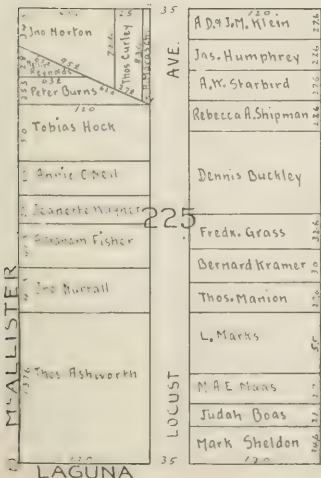 35
25
Jno Morton
Thos Curley
Peter Burns
120
Tobias Hock
Annie O'Neil
Jeanette Wagner
Abraham Fisher
Jno Murrall
Thos Ashworth
137 6
McALLISTER
LAGUNA
AVE.
225
LOCUST
35
120
A D. & J. M. Klein
22 6
Jas. Humphrey
22 6
A. W. Starbird
27 6
Rebecca A. Shipman
Dennis Buckley
Fredk. Grass
32 6
Bernard Kramer
30
Thos. Manion
L. Marks
55
M A E Maas
Judah Boas
Mark Sheldon
120